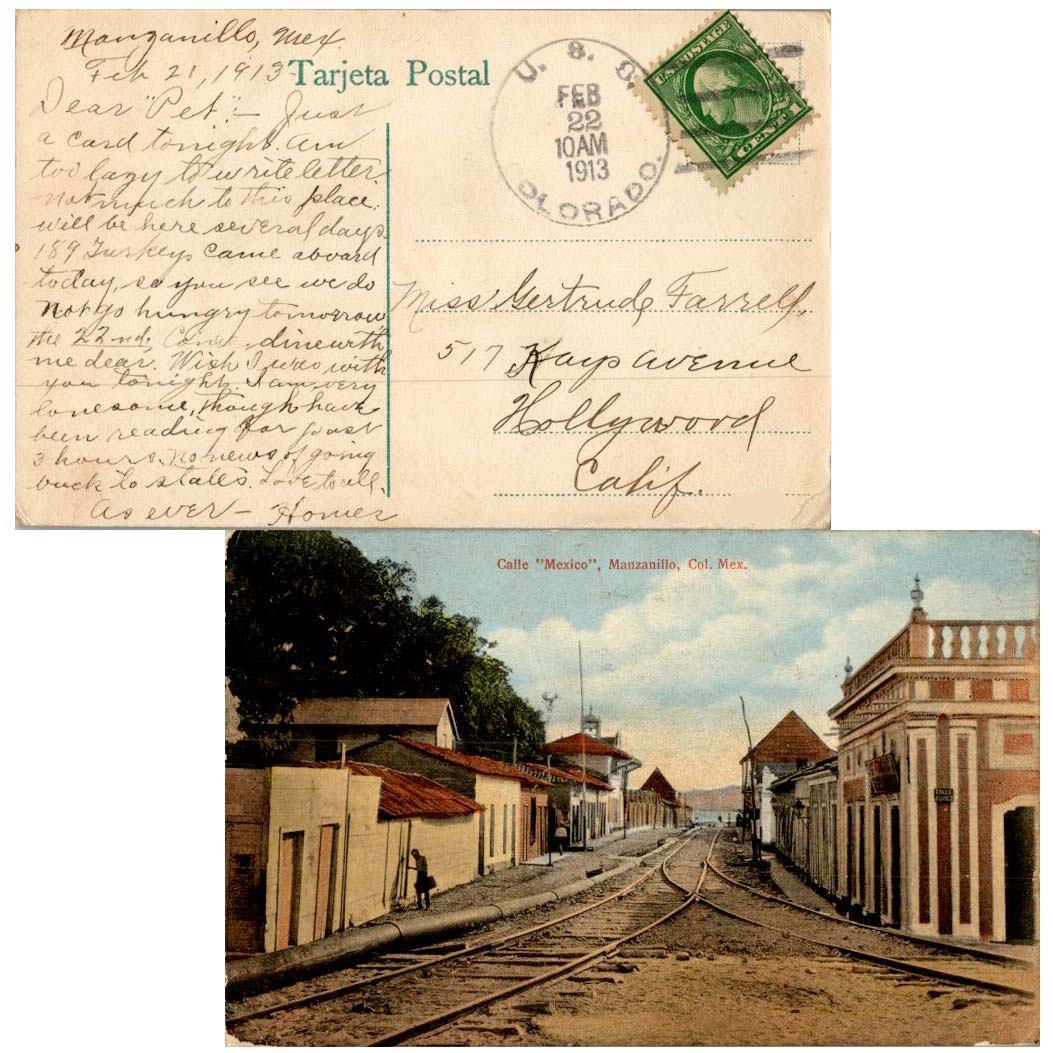 Manzanillo, Mex.
Feb 21, 1913
Tarjeta Postal
Dear "Pet":- Just
a card tonight. Am
too lazy to write letter.
Not much to this place.
will be here several days.
189 Turkeys came aboard
today, so you see we do
not go hungry tomorrow
the 22nd. Come dine with
me dear. Wish I was with
you tonight. I am very
lonesome, though have
been reading for past
3 hours. No news of going
back to states. Love to all.
As ever - Homer
U. S. S.
COLORADO.
FEB
22
10AM
1913
U.S. POSTAGE
1 CENT 1
Miss Gertrude Farrell,
517 Kays avenue
Hollywood
Calif.
Calle "Mexico", Manzanillo, Col. Mex.
CALLE
JUAREZ